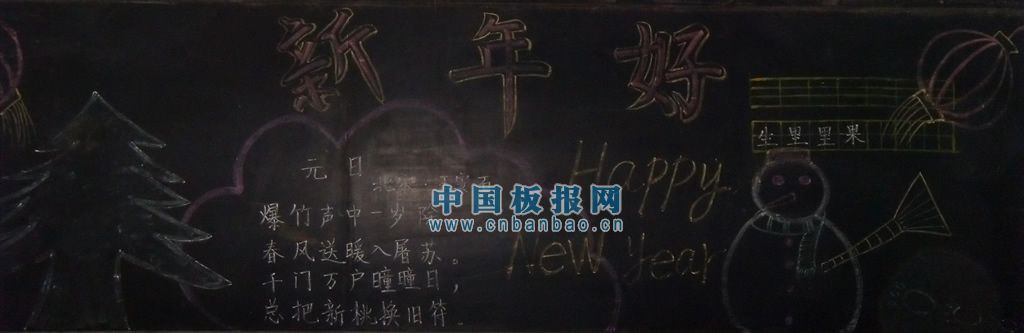 新年好
元日
北宋
爆竹声中一岁
春风送暖入屠苏。
千门万户曈曈日，
总把新桃换旧符
Happy
New Year
坐里里果
中国板报网
www.cnbanbao.cn